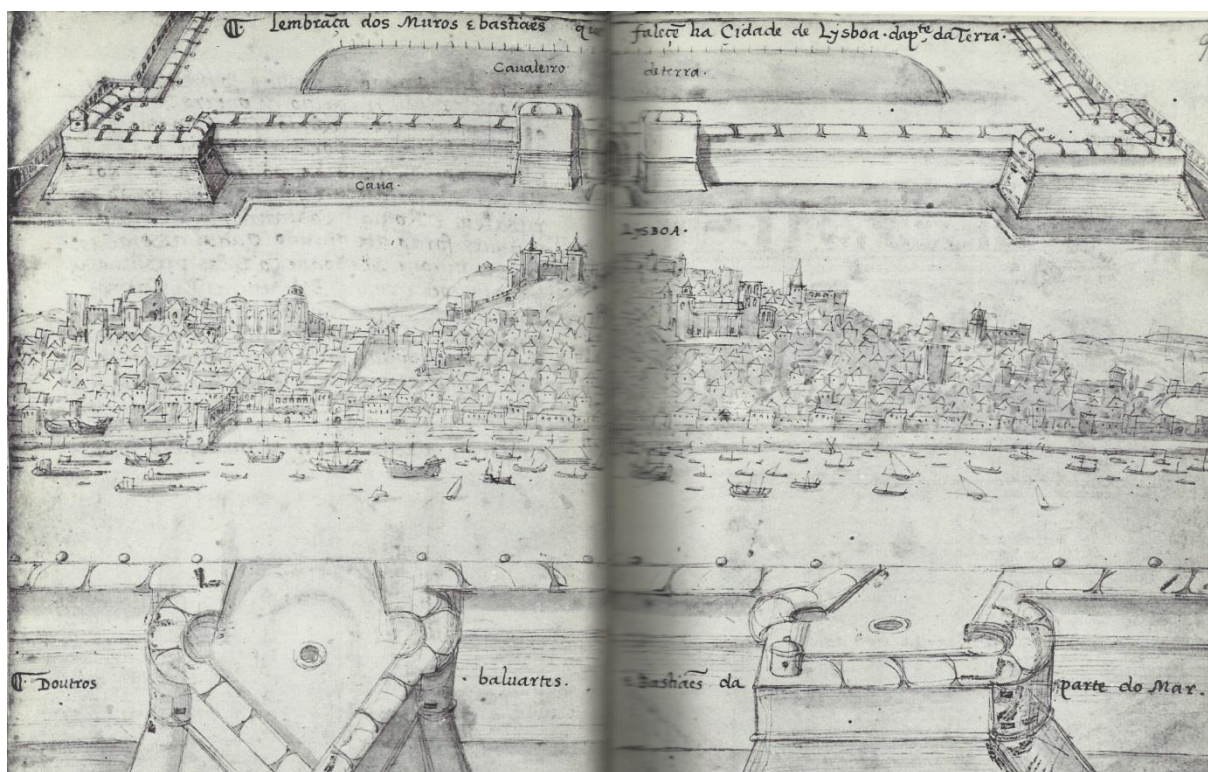 Lembrãça dos Muros E bastiães que faleçẽ ha Cidade de Lysboa · dapte. da Terra ·
Caualeiro de terra ·
Caua ·
LYSBOA ·
Doutros baluartes · E Bastiães da parte do Mar ·